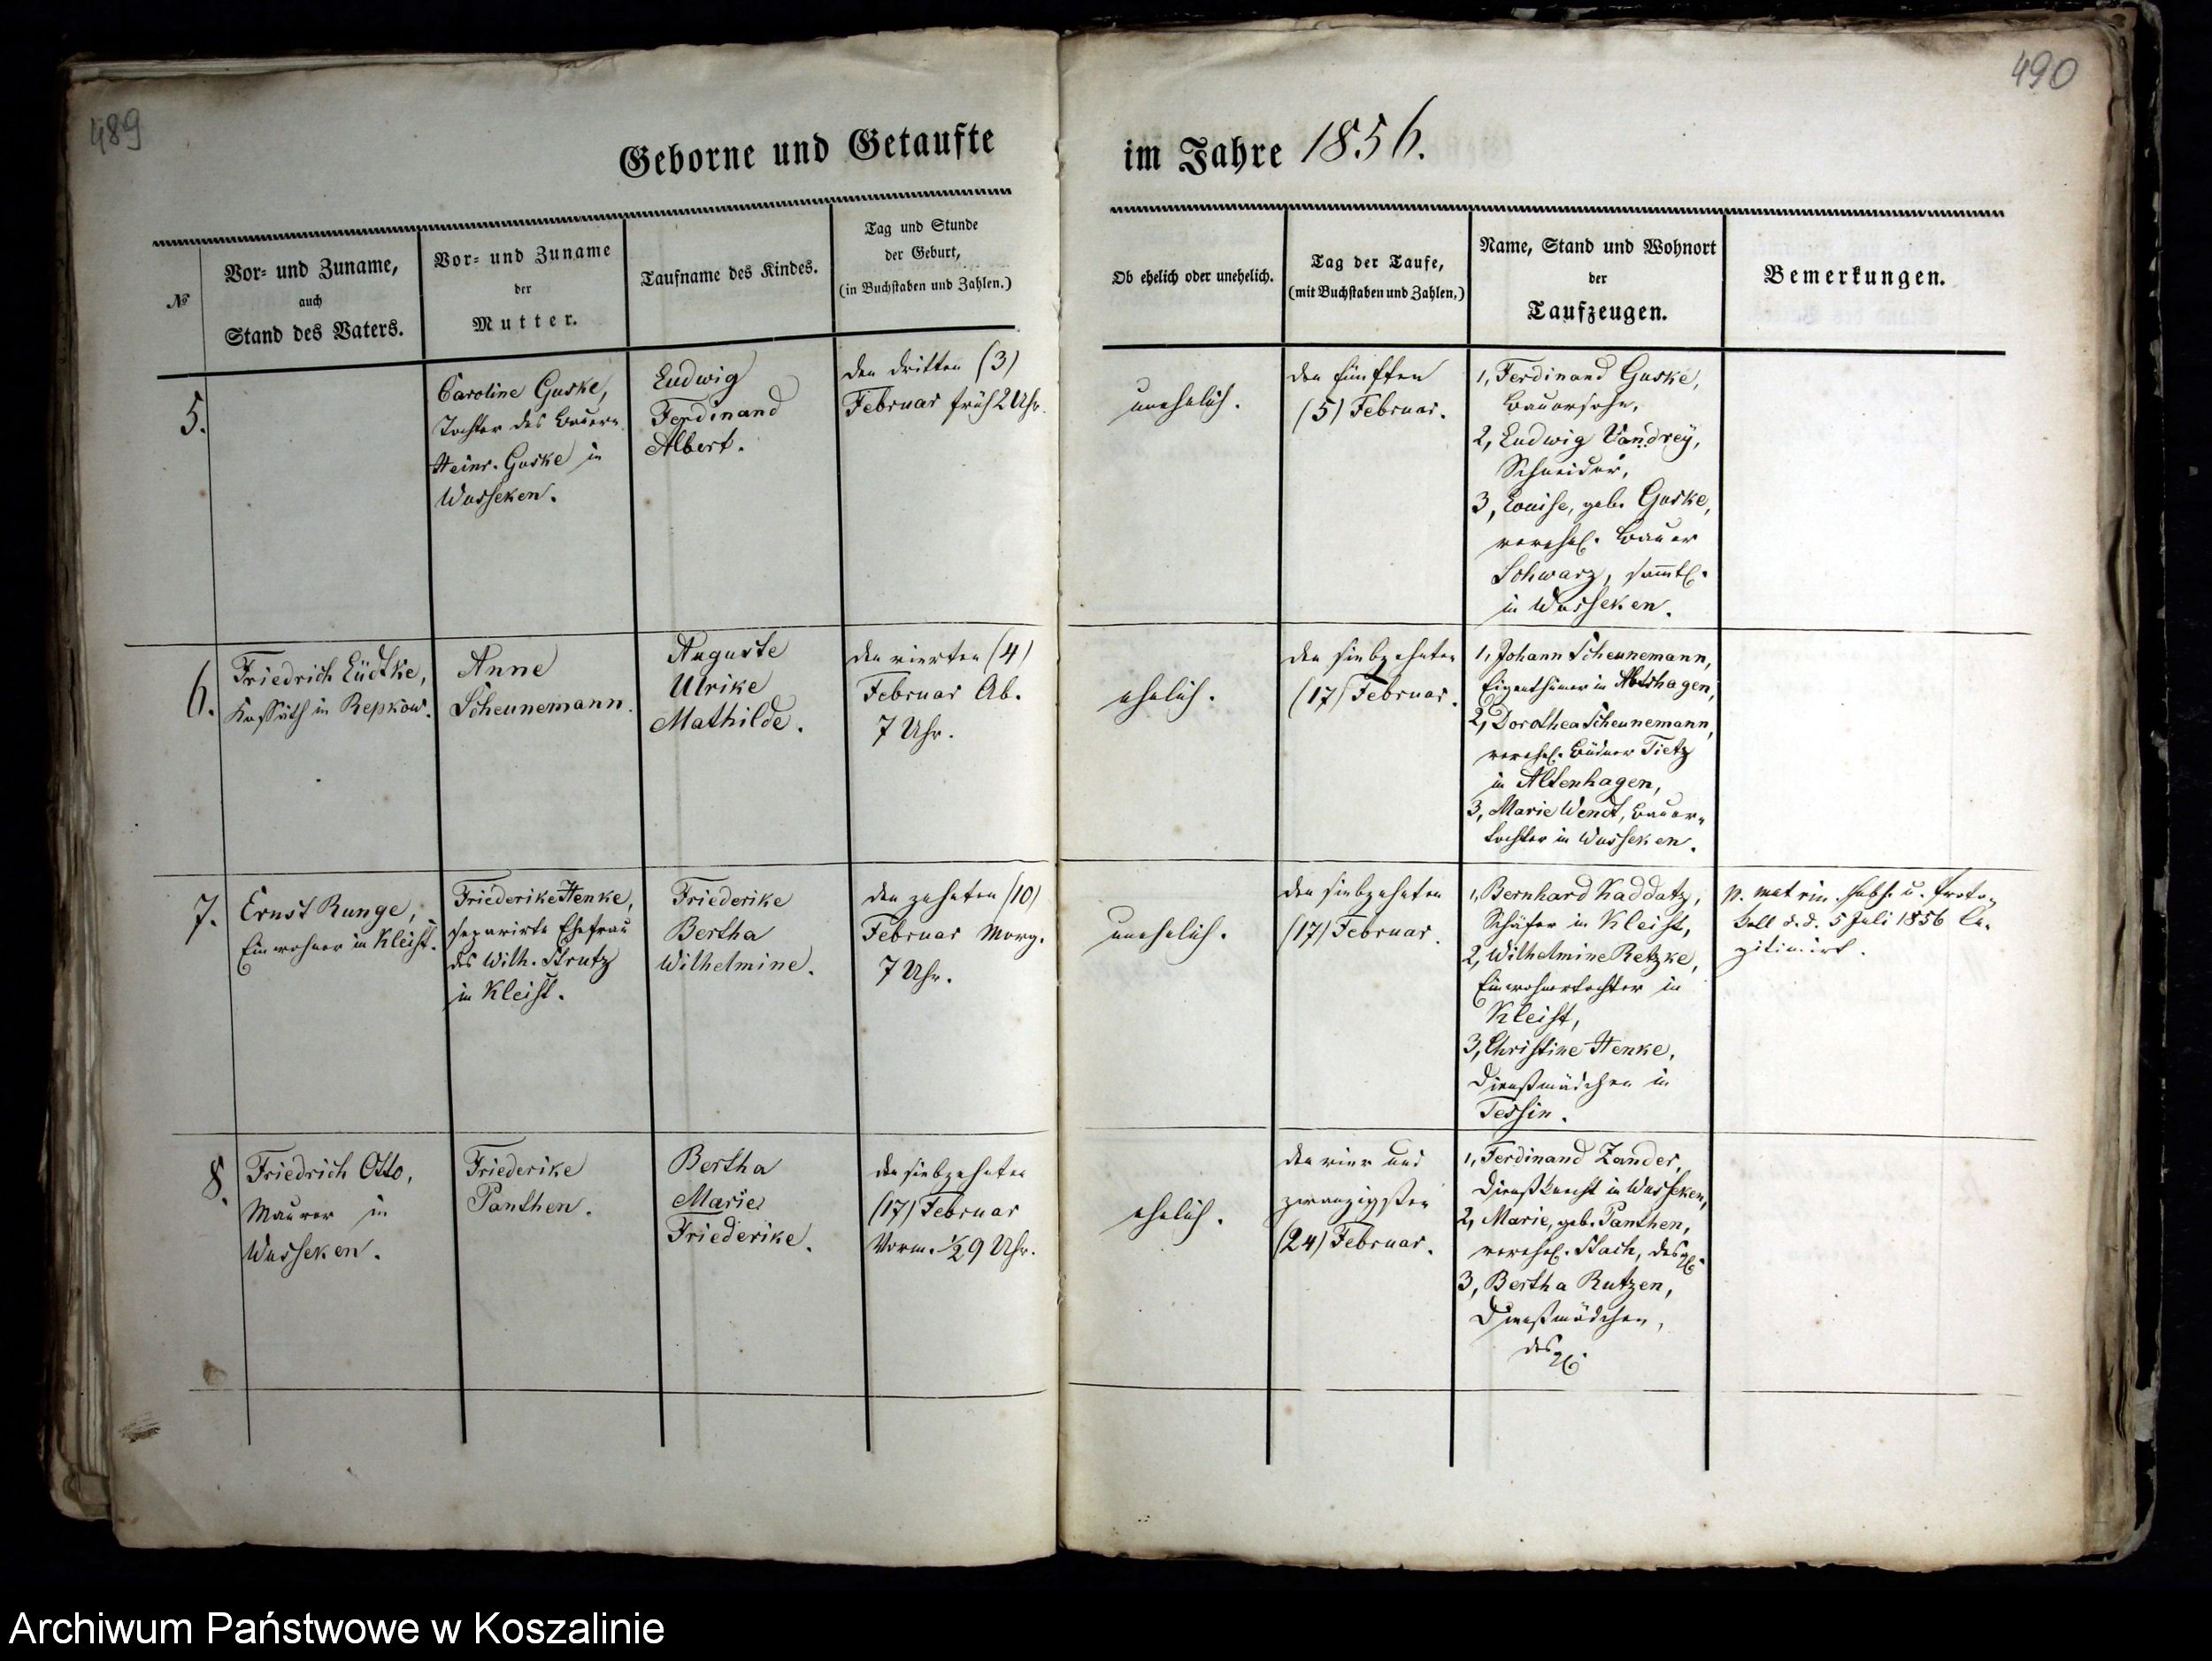 489
490
Geborne und Getaufte
im Jahre 1856.
№
Vor- und Zuname,
auch
Stand des Vaters.
Vor- und Zuname
der
Mutter.
Taufname des Kindes.
Tag und Stunde
der Geburt,
(in Buchstaben und Zahlen.)
Ob ehelich oder unehelich.
Tag der Taufe,
(mit Buchstaben und Zahlen.)
Name, Stand und Wohnort
der
Taufzeugen.
Bemerkungen.
5.
Caroline Guske,
Tochter des Bauern
Heinr. Guske in
Wusseken.
Ludwig
Ferdinand
Albert.
den dritten (3)
Februar früh 2 Uhr.
unehelich.
den fünften
(5) Februar.
1, Ferdinand Guske,
Bauersohn,
2, Ludwig Vandrey,
Schneider,
3, Louise, geb. Guske,
verehel. Bauer
Schwarz, sämmtl.
in Wusseken.
6.
Friedrich Lüdtke,
Kossäth in Repkow.
Anne
Scheunemann.
Auguste
Ulrike
Mathilde.
den vierten (4)
Februar Ab.
7 Uhr.
ehelich.
den siebzehnten
(17) Februar.
1, Johann Scheunemann,
Eigenthümer in Abtshagen,
2, Dorothea Scheunemann,
verehel. Büdner Tietz
in Altenhagen,
3, Marie Wendt, Bauer-
tochter in Wusseken.
7.
Ernst Runge,
Einwohner in Kleist.
Friederike Henke,
separirte Ehefrau
des Wilh. Strutz
in Kleist.
Friederike
Bertha
Wilhelmine.
den zehnten (10)
Februar Morg.
7 Uhr.
unehelich.
den siebzehnten
(17) Februar.
1, Bernhard Kaddatz,
Schäfer in Kleist,
2, Wilhelmine Retzke,
Einwohnertochter in
Kleist,
3, Christine Henke,
Dienstmädchen in
Tessin.
p. matrim. subs. u. Proto-
koll d. d. 5 Juli 1856 le-
gitimirt.
8.
Friedrich Otto,
Maurer in
Wusseken.
Friederike
Panthen.
Bertha
Marie
Friederike.
den siebzehnten
(17) Februar
Vorm. ½9 Uhr.
ehelich.
den vier und
zwanzigsten
(24) Februar.
1, Ferdinand Zander,
Dienstknecht in Wusseken,
2, Marie, geb. Panthen,
verehel. Stach, desgl.
3, Bertha Rutzen,
Dienstmädchen,
desgl.
Archiwum Państwowe w Koszalinie